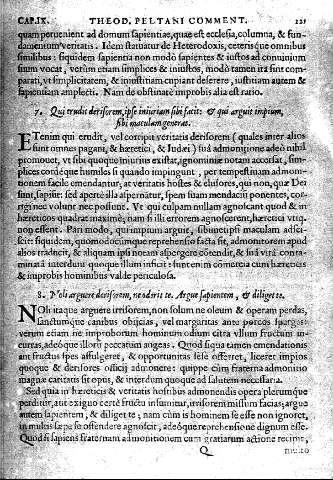 CAP.IX. THEOD. PELTANI COMMENT. 121
quam perueniet ad domum sapientiæ, quæ est ecclesia, columna, & fun-
damentum veritatis. Idem statuatur de Heterodoxis, ceterisque omnibus
similibus: siquidem sapientia non modò sapientes & iustos ad conuiuium
suum vocat, verùm etiam simplices & iniustos, modò tamen ita sint com-
parati, vt simplicitatem, & iniustitiam cupiant deserere, iustitiam autem &
sapientiam amplecti. Nam de obstinatè improbis alia est ratio.
7. Qui erudit derisorem, ipse iniuriam sibi facit: & qui arguit impium,
sibi maculam generat.
ETenim qui erudit, vel corripit veritatis derisorem (quales inter alios
sunt omnes pagani, & hæretici, & Iudæi) suâ admonitione adeò nihil
promouet, vt sibi quoque iniurius existat, ignominiæ notam accersat, sim-
plices cordéque humiles si quando impingunt, per tempestiuam admoni-
tionem facilè emendantur; at veritatis hostes & elusores, qui non, quæ Dei
sunt, sapiunt: sed apertè illa aspernantur, spem suam mendacij ponentes, cor-
rigi nec volunt nec possunt. Vt qui culpam nullam agnoscant quod & in
hæreticos quadrat maximè; nam si illi errorem agnoscerent, hæretici vtiq.
non essent. Pari modo, qui impium arguit, sibimetipsi maculam adsci-
scit: siquidem, quomodocumque reprehensio facta sit, admonitorem apud
alios tráducit, & aliquam ipsi notam aspergere côtendit, & suâ vitâ conta-
minatâ interdum quoque illum inficit: sunt enim cômercia cum hæreticis
& improbis hominibus valdè periculosa.
8. Noli arguere derisorem, ne oderit te. Argue sapientem, & diliget te.
NOli itaque arguere irrisorem, non solum ne oleum & operam perdas,
sanctumque canibus obijcias, vel margaritas ante porcos spargas:
verum etiam ne improborum hominum odium citra vllum fructum in-
curras, adeóque illorum peccatum augeas. Quod siqua tamen emendationis
aut fructus spes affulgeret, & opportunitas sese offerret, liceret impios
quoque & derisores officij admonere: quippe cùm fraterna admonitio
magnæ caritatis sit opus, & interdum quoque ad salutem necessaria.
Sed quia in hæreticis & veritatis hostibus admonendis opera plerumque
perditur, aut exiguo certè fructu insumitur, irrisorem missum facias; argue
autem sapientem, & diliget te, nam cùm is hominem se esse non ignoret,
in multis sæpe se offendere agnoscit, adeóque reprehensione dignum esse.
Quod si sapiens fraternam admonitionem cum gratiarum actione recipit,
Q